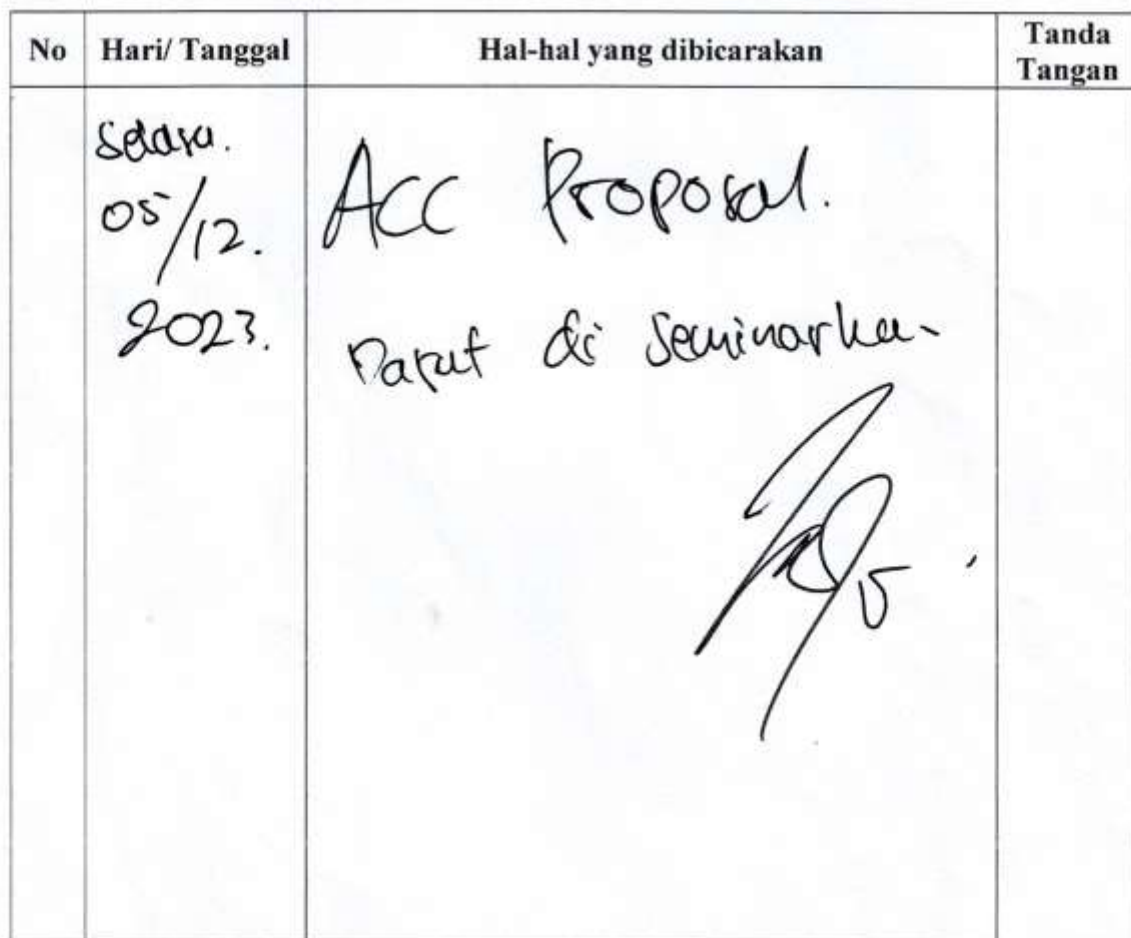 No Hari/ Tanggal Hal-hal yang dibicarakan Tanda Tangan
Selasa.
05/12.
2023.
ACC Proposal.
Dapat di seminarkan